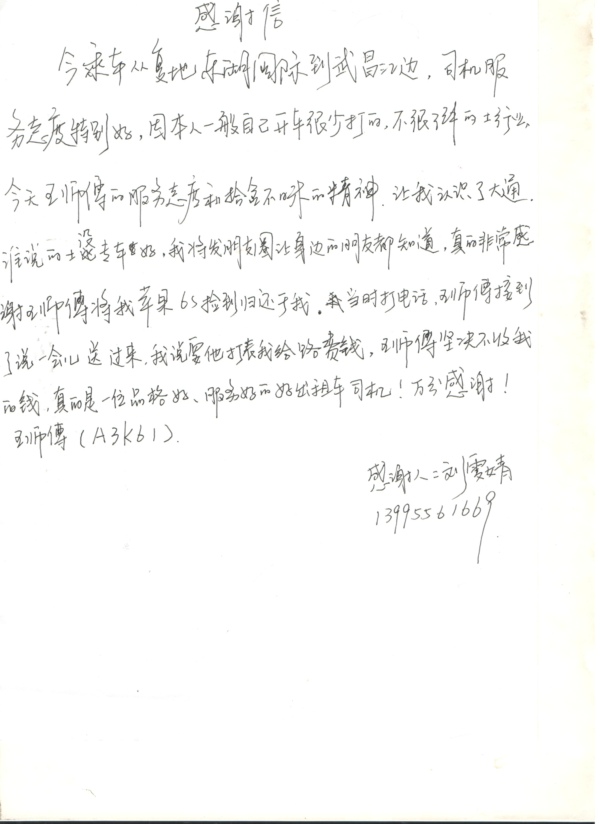 感谢信
今乘车从复地东湖国际到武昌江边，司机服
务态度特别好，因本人一般自己开车很少打的，不很了解的士行业、
今天王师傅的服务态度和拾金不昧的精神．让我认识了大通．
谁说的士没专车好，我将发朋友圈让身边的朋友都知道，真的非常感
谢王师傅将我苹果6S捡到归还于我．我当时打电话，王师傅接到
了说一会儿送过来．我说要他打表我给路费钱，王师傅坚决不收我
的钱，真的是一位品格好、服务好的好出租车司机！万分感谢！
王师傅（A3K61）．
感谢人：刘雯婧
13995561669